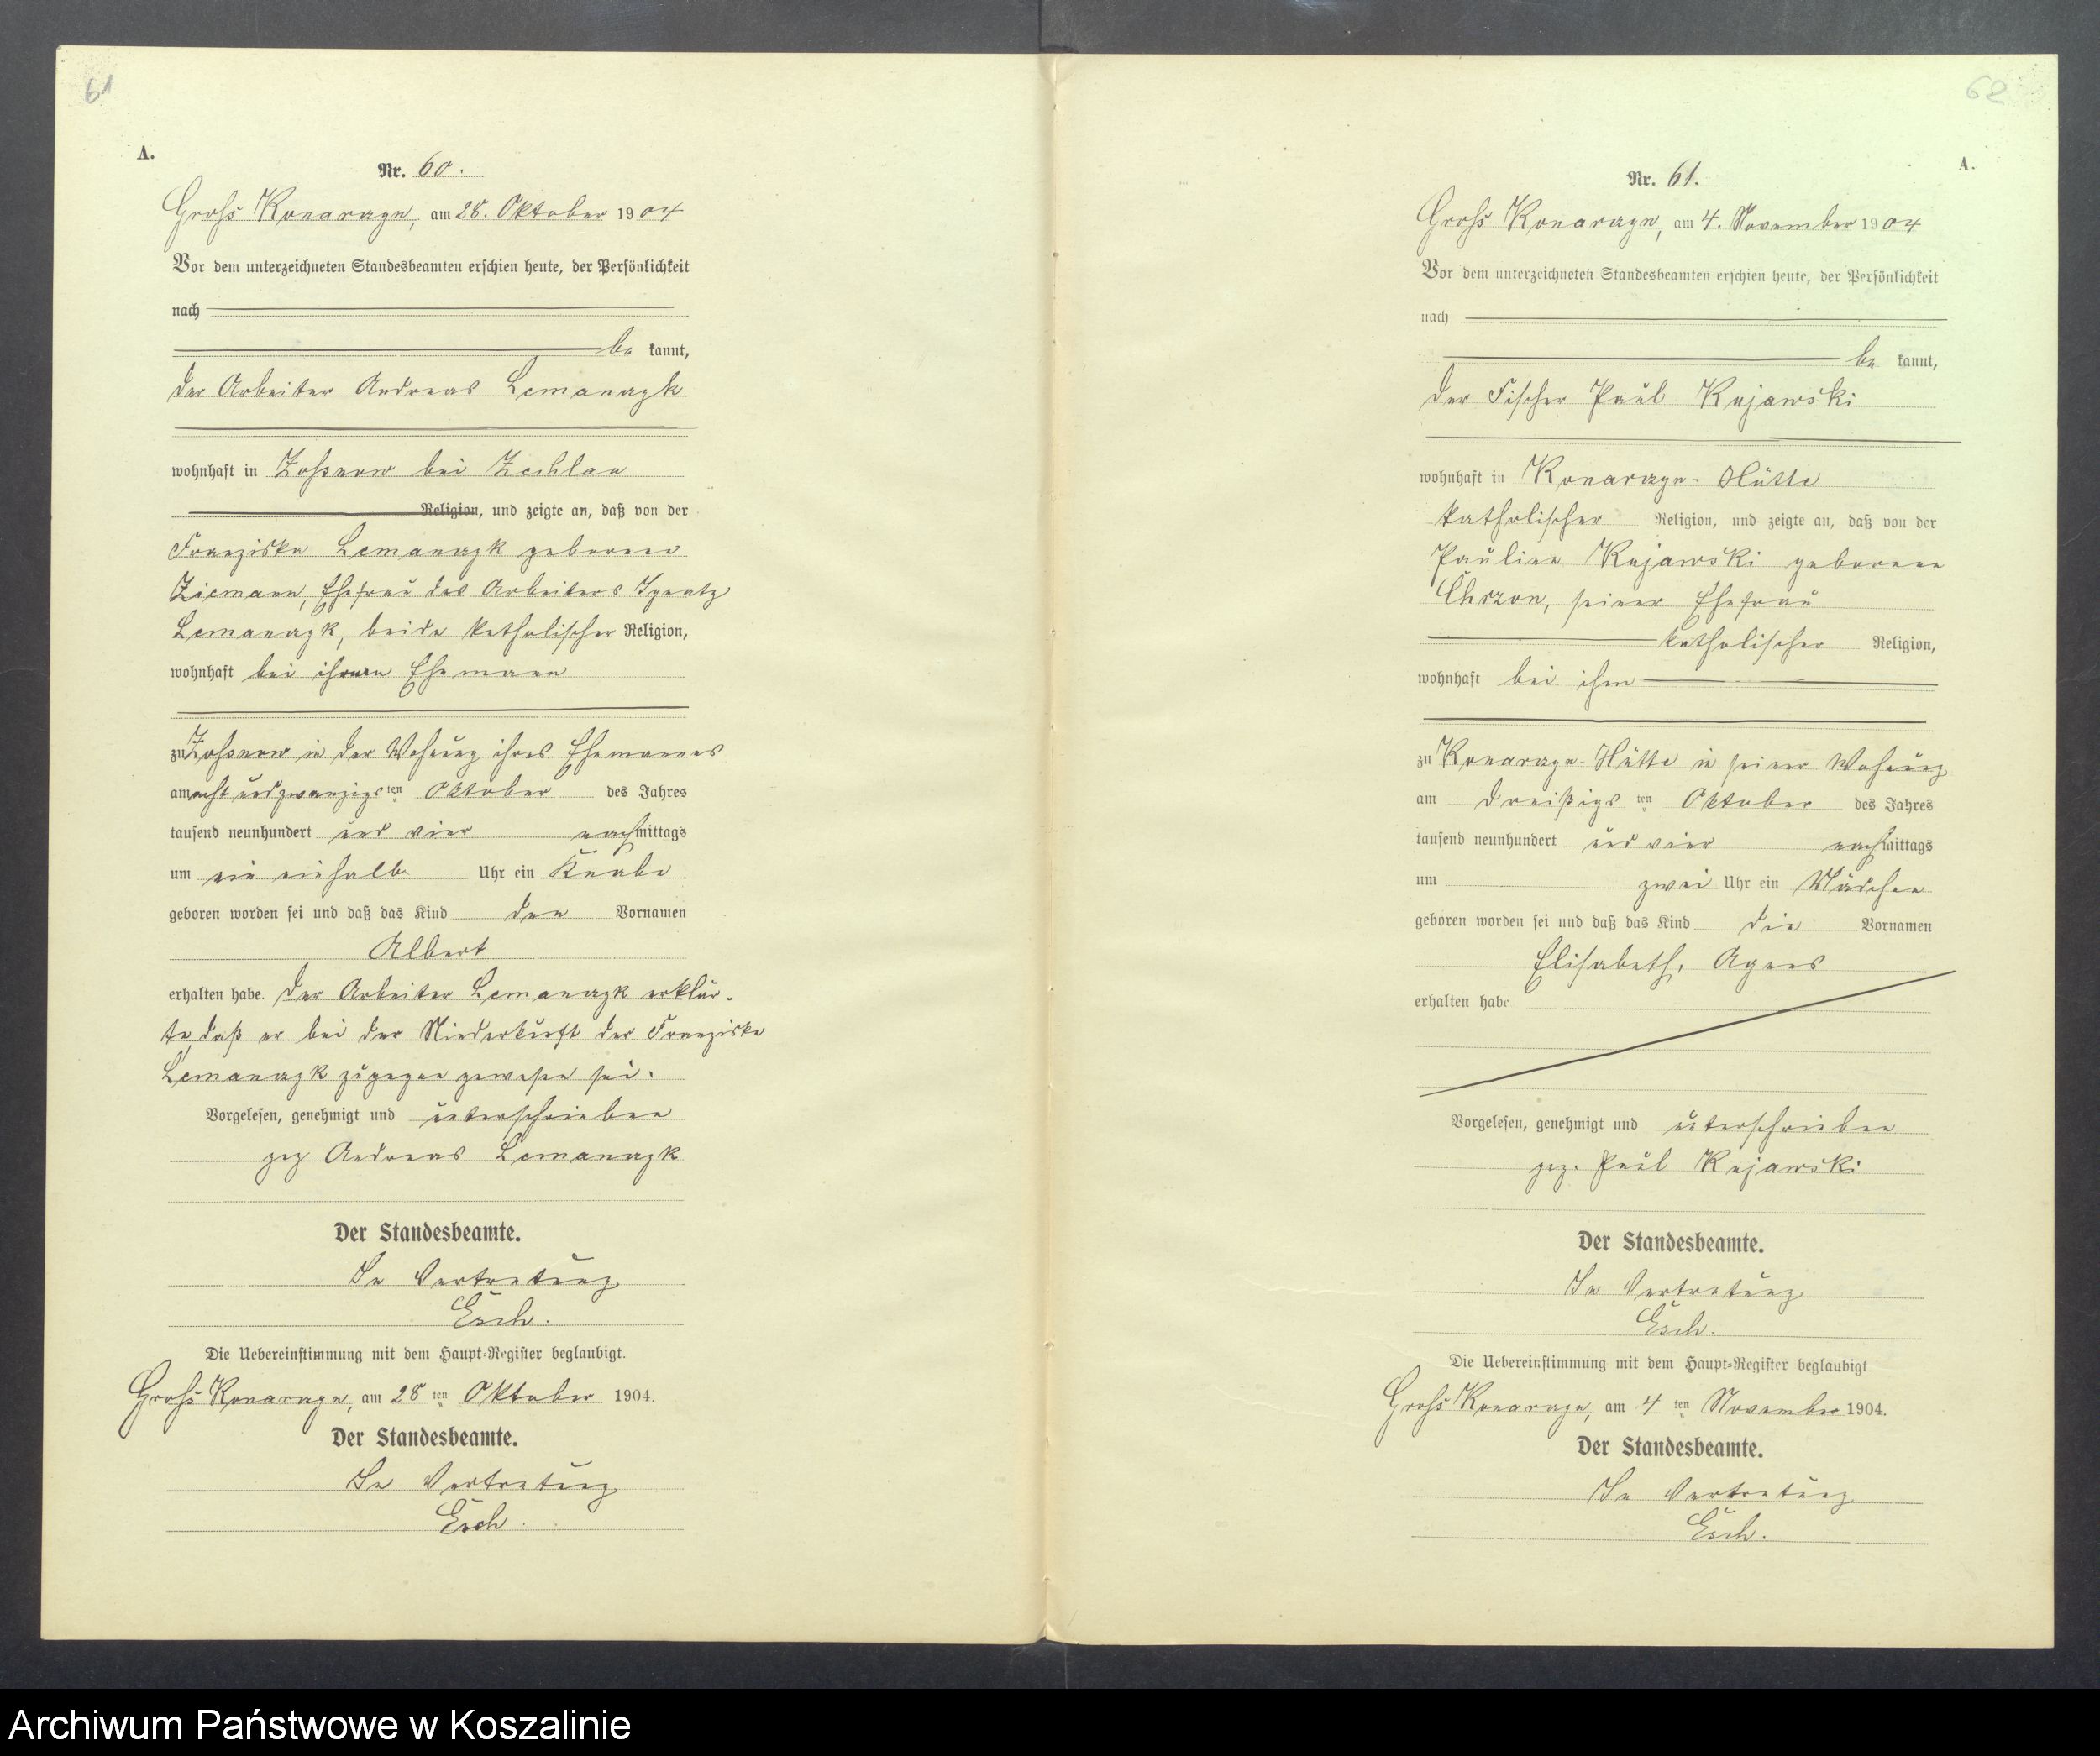 61
A.
Nr. 60.
Gross Konarzyn, am 28. Oktober 1904
Vor dem unterzeichneten Standesbeamten erschien heute, der Persönlichkeit
nach
be kannt,
der Arbeiter Andreas Lemanczk
wohnhaft in bei Zechlau
Religion, und zeigte an, daß von der
Franziska Lemanczk geborene
Ziemann, Ehefrau des Arbeiters Ignatz
Lemanczk, beide katholischer Religion,
wohnhaft bei ihrem Ehemann
zu in der Wohnung ihres Ehemannes
am acht und zwanzigsten Oktober des Jahres
tausend neunhundert und vier nachmittags
um ein einhalb Uhr ein Knabe
geboren worden sei und daß das Kind den Vornamen
Albert
erhalten habe. Der Arbeiter Lemanczk erklär-
te, daß er bei der Niederkunft der Franziska
Lemanczk zugegen gewesen sei.
Vorgelesen, genehmigt und unterschrieben
gez Andreas Lemanczk
Der Standesbeamte.
In Vertretung
Esch.
Die Uebereinstimmung mit dem Haupt-Register beglaubigt.
Gross Konarzyn, am 28 ten Oktober 1904.
Der Standesbeamte.
In Vertretung
Esch.
62
A.
Nr. 61.
Gross Konarzyn, am 4. November 1904
Vor dem unterzeichneten Standesbeamten erschien heute, der Persönlichkeit
nach
be kannt,
der Fischer Paul Kujawski
wohnhaft in Konarzyn-Hütte
katholischer Religion, und zeigte an, daß von der
Pauline Kujawski geborene
Chrzon, seiner Ehefrau
katholischer Religion,
wohnhaft bei ihm
zu Konarzyn-Hütte in seiner Wohnung
am dreißigs ten Oktober des Jahres
tausend neunhundert und vier nachmittags
um zwei Uhr ein Mädchen
geboren worden sei und daß das Kind die Vornamen
Elisabeth, Agnes
erhalten habe
Vorgelesen, genehmigt und unterschrieben
gez. Paul Kujawski
Der Standesbeamte.
In Vertretung
Esch.
Die Uebereinstimmung mit dem Haupt-Register beglaubigt
Gross Konarzyn, am 4 ten November 1904.
Der Standesbeamte.
In Vertretung
Esch.
Archiwum Państwowe w Koszalinie